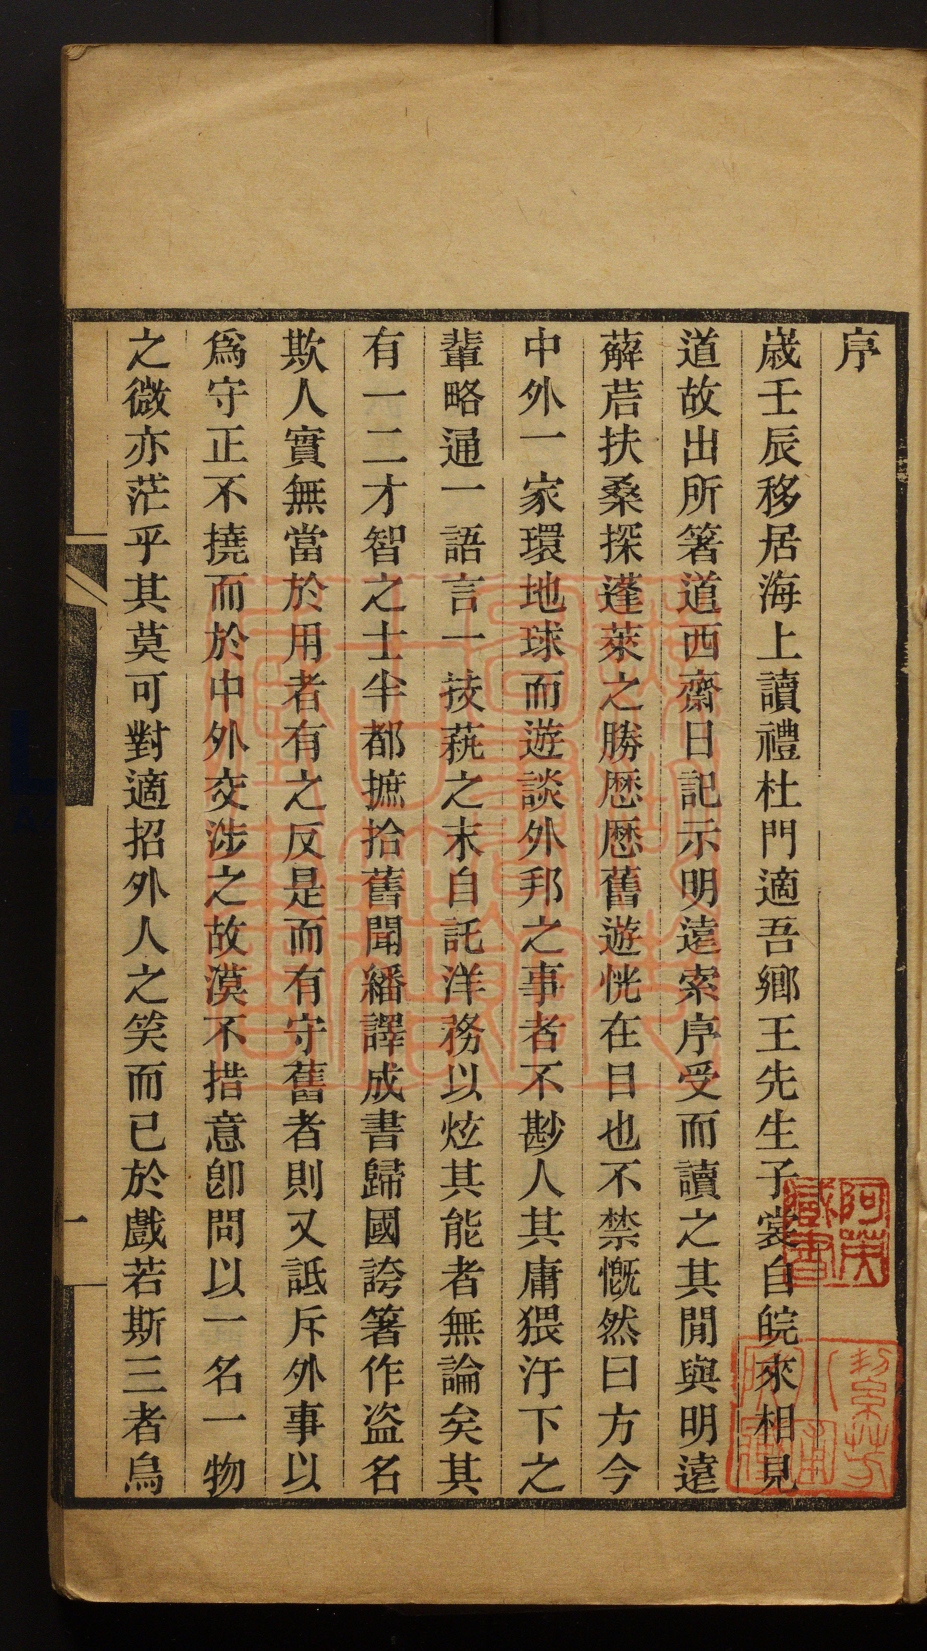 序
歲壬辰移居海上讀禮杜門適吾鄉王先生子裳自皖來相見
道故出所箸道西齋日記示明遠索序受而讀之其閒與明遠
薢茩扶桑探蓬萊之勝歷歷舊遊恍在目也不禁慨然曰方今
中外一家環地球而遊談外邦之事者不尠人其庸猥汙下之
輩略通一語言一技蓺之末自託洋務以炫其能者無論矣其
有一二才智之士半都摭拾舊聞繙譯成書歸國誇箸作盜名
欺人實無當於用者有之反是而有守舊者則又詆斥外事以
爲守正不撓而於中外交涉之故漠不措意卽問以一名一物
之微亦茫乎其莫可對適招外人之笑而已於戲若斯三者烏
一